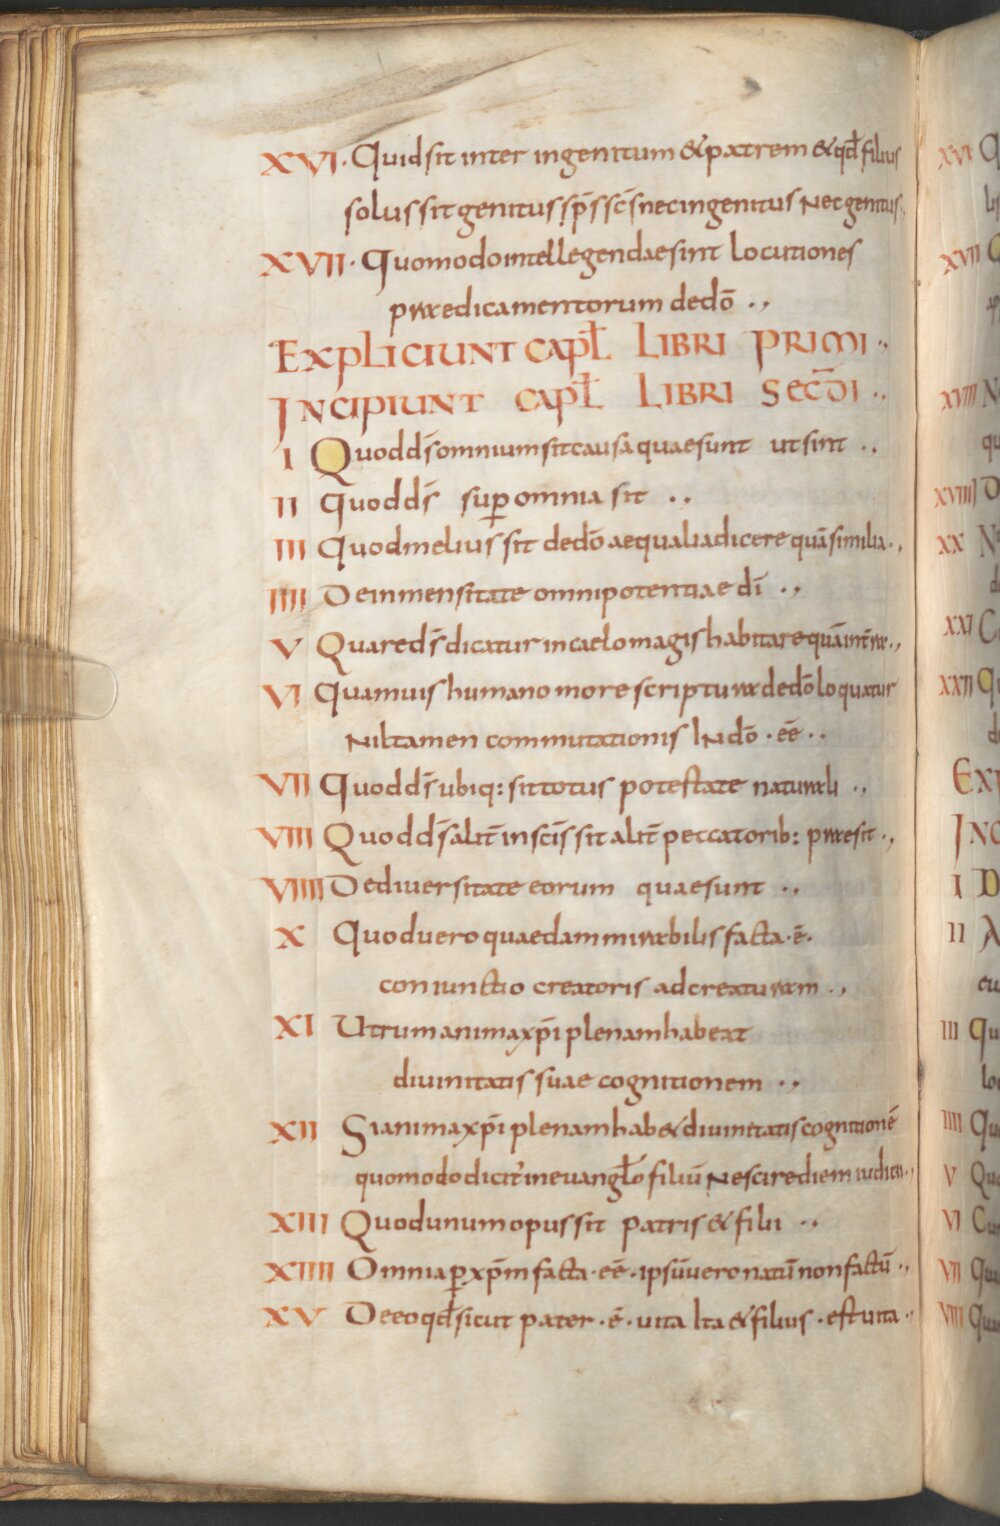 XVI · Quid sit inter ingenitum & patrem & qđ filius
solus sit genitus sp̄s sc̄s nec ingenitus nec genitus.
XVII · Quomodo intellegendae sint locutiones
praedicamentorum de dō ··,
EXPLICIUNT CAPL̄ LIBRI PRIMI ··,
INCIPIUNT CAPL̄ LIBRI SEC̄DI ··,
I Quod ds̄ omnium sit causa quae sunt ut sint ··,
II Quod ds̄ suꝑ omnia sit ··,
III Quod melius sit de dō aequalia dicere quā similia ··,
IIII De inmensitate omnipotentiae dī ··,
V Quare ds̄ dicatur in caelo magis habitare quā in t̄ra ··,
VI Quamuis humano more scriptura de dō loquatur
nil tamen commutationis In dō · eē ··
VII Quod ds̄ ubiq: sit totus potestate naturali ··,
VIII Quod ds̄ alit̄ in sc̄is sit alit̄ peccatorib: praesit ··,
VIIII De diuersitate eorum quae sunt ··,
X Quod uero quaedam mirabilis facta · ē ·
coniunctio creatoris ad creaturam ··,
XI Utrum anima xp̄i plenam habeat
diuinitatis suae cognitionem ··,
XII Si anima xp̄i plenam hab& diuinitatis cognitionē
quomodo dicit̄ in euangl̄o filiū nescire diem iudicii ··,
XIII Quod unum opus sit patris & filii ··,
XIIII Omnia ꝑ xp̄m facta · eē · ipsū uero natū non factū ··,
XV De eo qđ sicut pater · ē · uita Ita & filius · est uita ··
XVI Q
XVII Q
XVIII N
qu
XVIIII D
XX N
XXI C
XXII Qu
EXP
INC
I D
II A
III Qu
IIII Qu
V Qu
VI Cu
VII Qu
VIII Qu